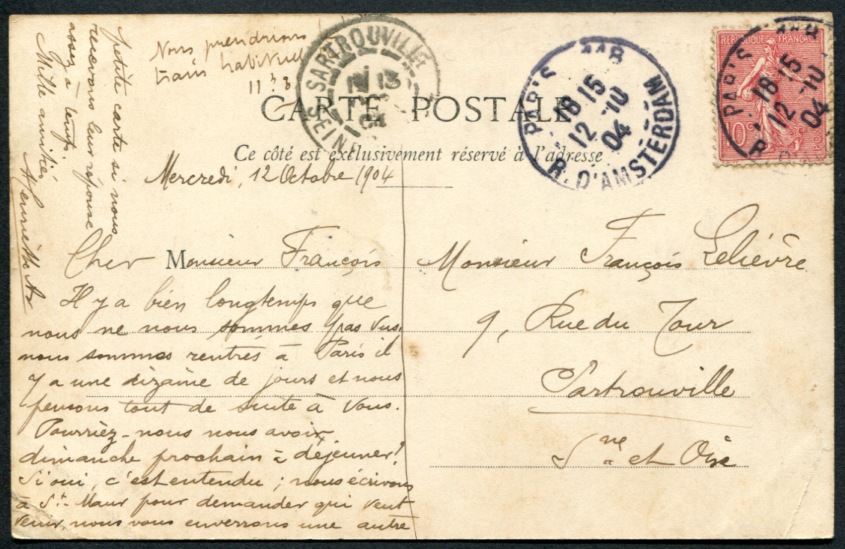 Nous prendrions
train habituel
11h 3
CARTE POSTALE
Ce côté est exclusivement réservé à l'adresse
Mercredi, 12 Octobre 1904
Cher Monsieur François
Il y a bien longtemps que
nous ne nous sommes pas vus.
nous sommes rentrés à Paris il
y a une dizaine de jours et nous
pensons tout de suite à vous.
Pourriez-nous nous avoir
dimanche prochain à déjeuner?
Si oui, c'est entendu; nous écrivons
à St-Maur pour demander qui veut
venir, nous vous enverrons une autre
petite carte si nous
recevons leur réponse
assez à temps.
Mille amitiés
Henriette
Monsieur François Lelièvre
9, Rue du Tour
Sartrouville
Sne et Oise
SARTROUVILLE
13
04
SEINE
PARIS 118
18 15
12 -10
04
R. D'AMSTERDAM
REPUBLIQUE FRANÇAISE
10
PARIS 118
18 15
12 -10
04
R.